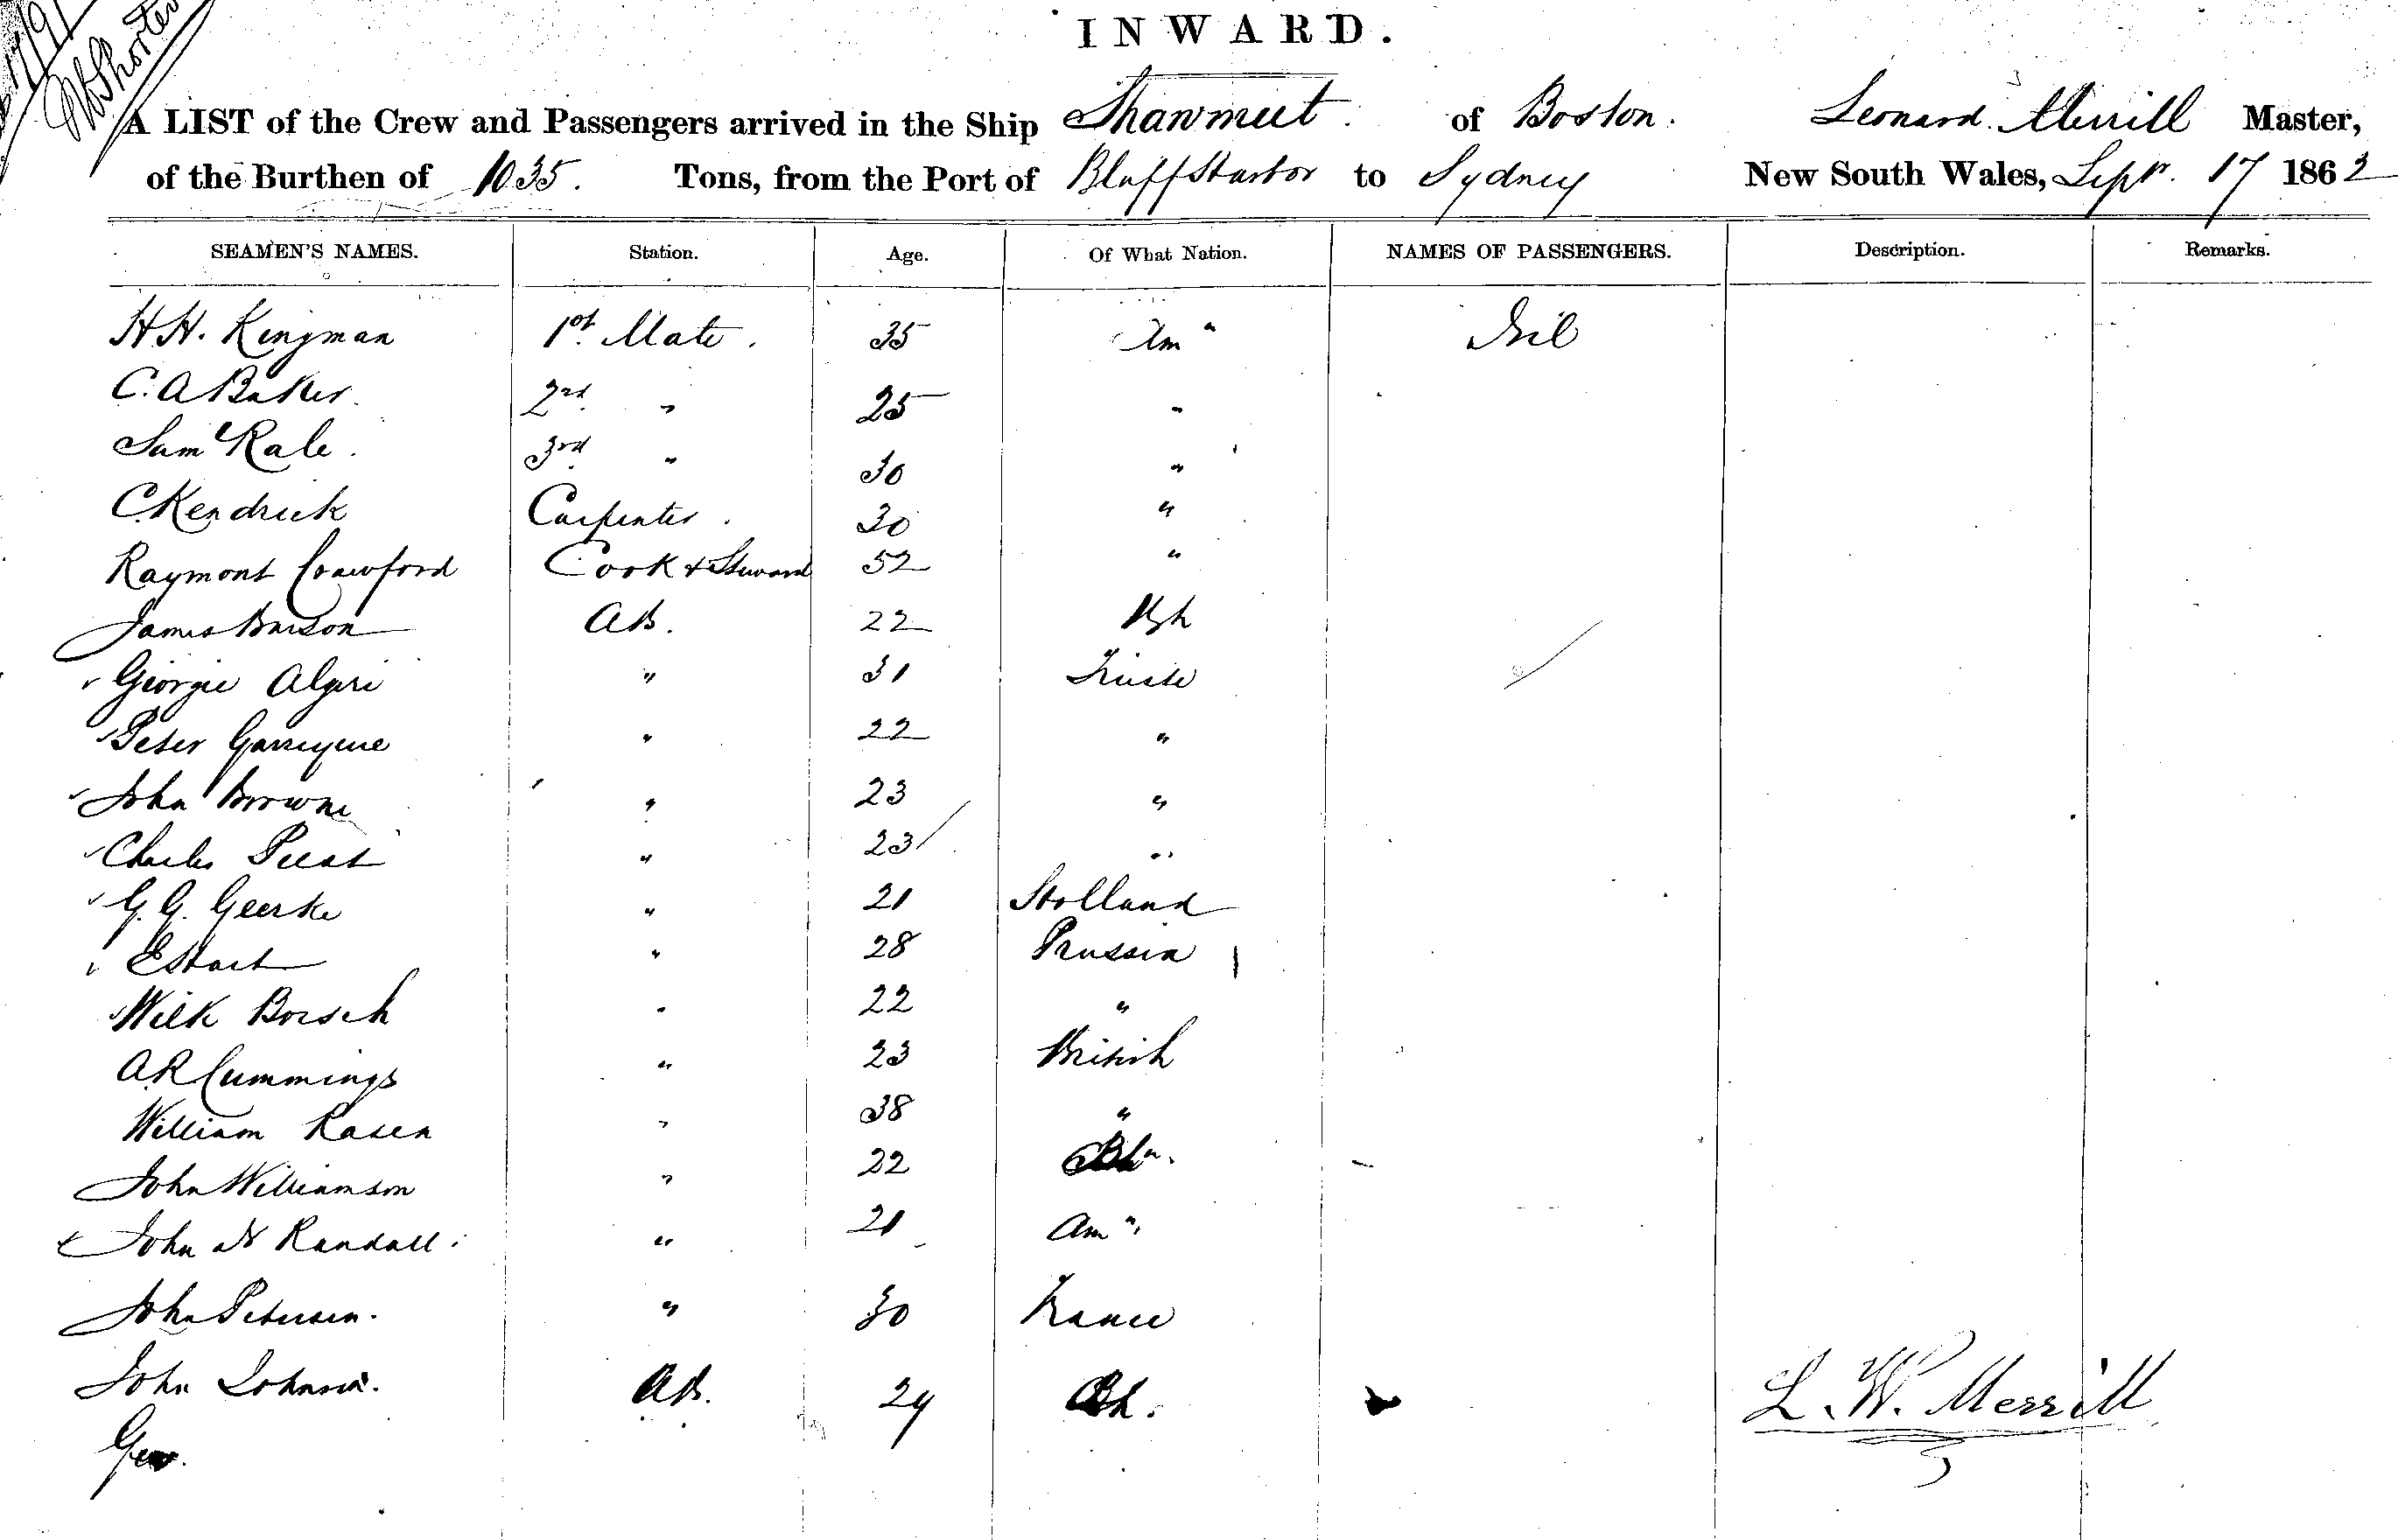 INWARD.
A LIST of the Crew and Passengers arrived in the Ship Shawmut of Boston. Leonard Merrill Master,
of the Burthen of 1035. Tons, from the Port of Bluff Harbor to Sydney New South Wales, Sepr. 17 1862
SEAMEN'S NAMES. Station. Age. Of What Nation. NAMES OF PASSENGERS. Description. Remarks.
H H. Kingman 1st Mate. 35 Am " Nil
C. A Baker. 2nd " 25 "
Saml Rale. 3rd " 30 "
C Kendrick Carpenter. 30 "
Raymont Crawford Cook & Steward 52 "
James AB. 22
Giorgie Algeri " 31 Trieste
Peter " 22 "
John Browne " 23 "
Charles " 23 "
G. G. Geerke " 21 Holland
E Hart " 28 Prussia
Wilk Borsch " 22 "
A R Cummings " 23 British
William Rasen " 38 "
John Williamson " 22
John N Randall. " 21 Am ".
John Petersen. " 30 France
John Johnson. AB. 29 Bh.
Geo.
L. W. Merrill